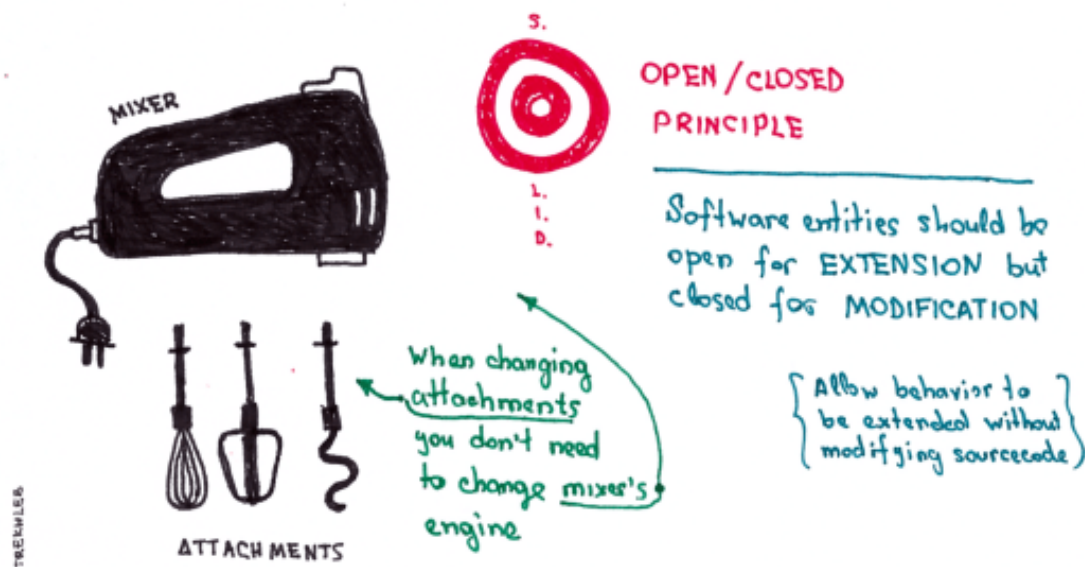 S.
L.
I.
D.
OPEN/CLOSED
PRINCIPLE
Software entities should be
open for EXTENSION but
closed for MODIFICATION
{Allow behavior to
be extended without
modifying sourcecode}
MIXER
When changing
attachments
you don't need
to change mixer's
engine
ATTACHMENTS
TREKHLEB